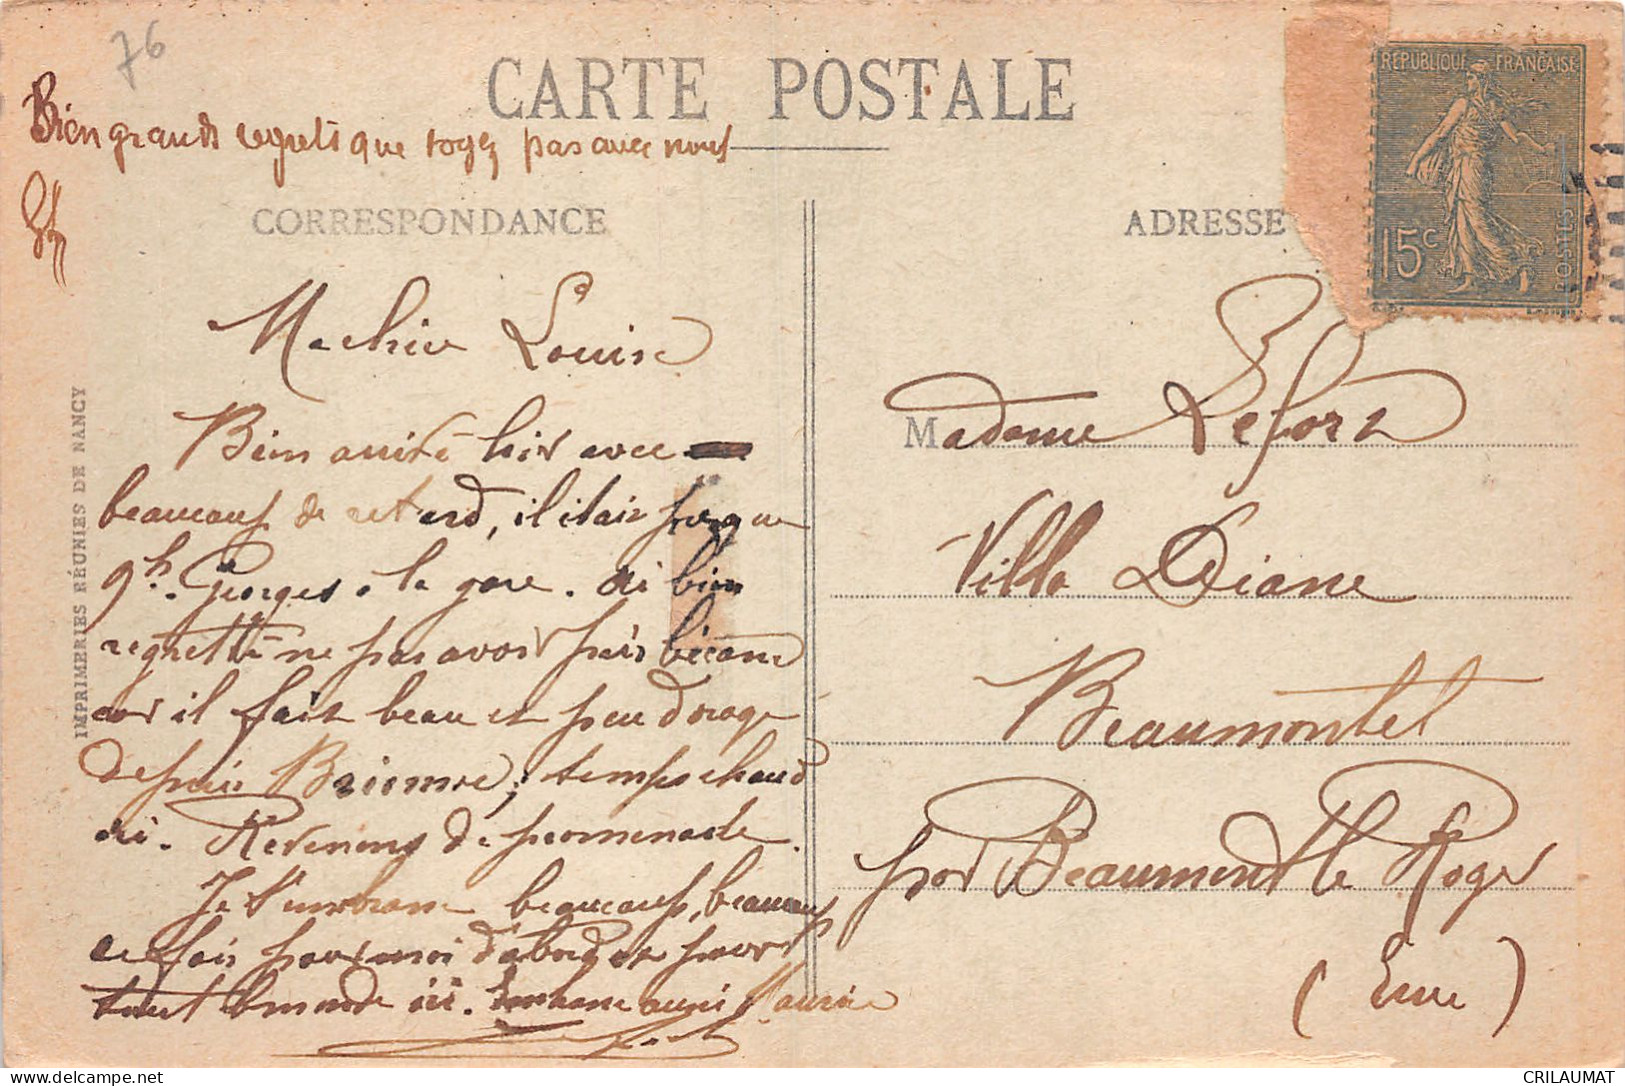 76
CARTE POSTALE
Bien grands regrets que soyez pas avec nous
CORRESPONDANCE
ADRESSE
REPUBLIQUE FRANÇAISE
15c
POSTES
Ma chère Louise
Bien arrivé hier avec
beaucoup de retard, il était presque
9h. Georges à la gare. Ai bien
regretté ne pas avoir pris bécane
car il fait beau et peu d'orage
depuis ; temps chaud
ici. Revenons de promenade.
Je t'embrasse beaucoup, beaucoup
de fois pour moi d'abord et pour
tout le monde ici. Embrasse aussi Maurice
Madame Lefort
Villa Diane
Beaumontel
par Beaumont le Roger
(Eure)
IMPRIMERIES RÉUNIES DE NANCY
delcampe.net
CRILAUMAT